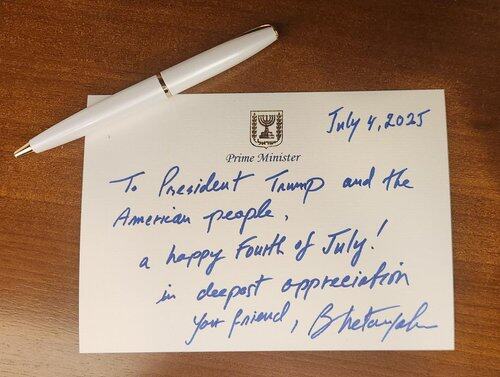 July 4, 2025
Prime Minister
To President Trump and the
American people,
a happy Fourth of July!
in deepest appreciation
your friend, BNetanyahu